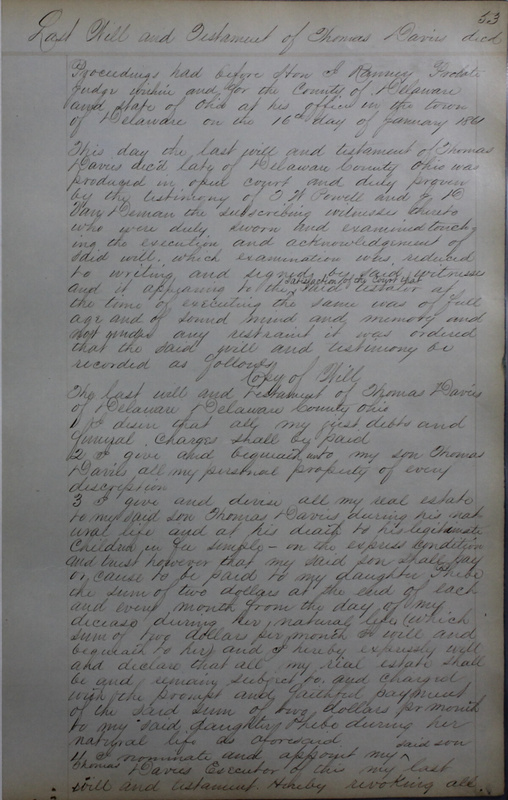 53
Last Will and Testament of Thomas Davis decd
Proceedings had before Hon J Ranney Probate
Judge within and for the County of Delaware
and state of Ohio at his office in the town
of Delaware on the 16th day of January 1861
This day the last will and testament of Thomas
Davies dec'd late of Delaware County Ohio was
produced in open court and duly proven
by the testimony of T W Powell and J D
Van Deman the subscribing witnesses thereto
who were duly sworn and examined touch
ing the execution and acknowledgement of
said will, which examination was reduced
to writing and signed by said witnesses
satisfaction of the Court that
and it appearing to the said testator at
the time of executing the same was of full
age and of sound mind and memory and
not under any restraint it was ordered
that the said will and testimony be
recorded as follows
Copy of Will
The last will and testament of Thomas Davies
of Delaware Delaware County Ohio
1 I desire that all my just debts and
funeral charges shall be paid
2 I give and bequeath unto my son Thomas
Davies all my personal property of every
description
3 I give and devise all my real estate
to my said son Thomas Davies during his nat
ural life and at his death to his legitimate
children in fee simple - on the express condition
and trust however that my said son shall pay
or cause to be paid to my daughter Phebe
the sum of two dollars at the end of each
and every month from the day of my
decease during her natural life (which
sum of two dollars per month I will and
bequeath to her) and I hereby expressly will
and declare that all my real estate shall
be and remain subject to and charged
with the prompt and faithful payment
of the said sum of two dollars per month
to my said daughter Phebe during her
natural life as aforesaid
said son
4 I nominate and appoint my
Thomas Davies Executor of this my last
will and testament. Hereby revoking all